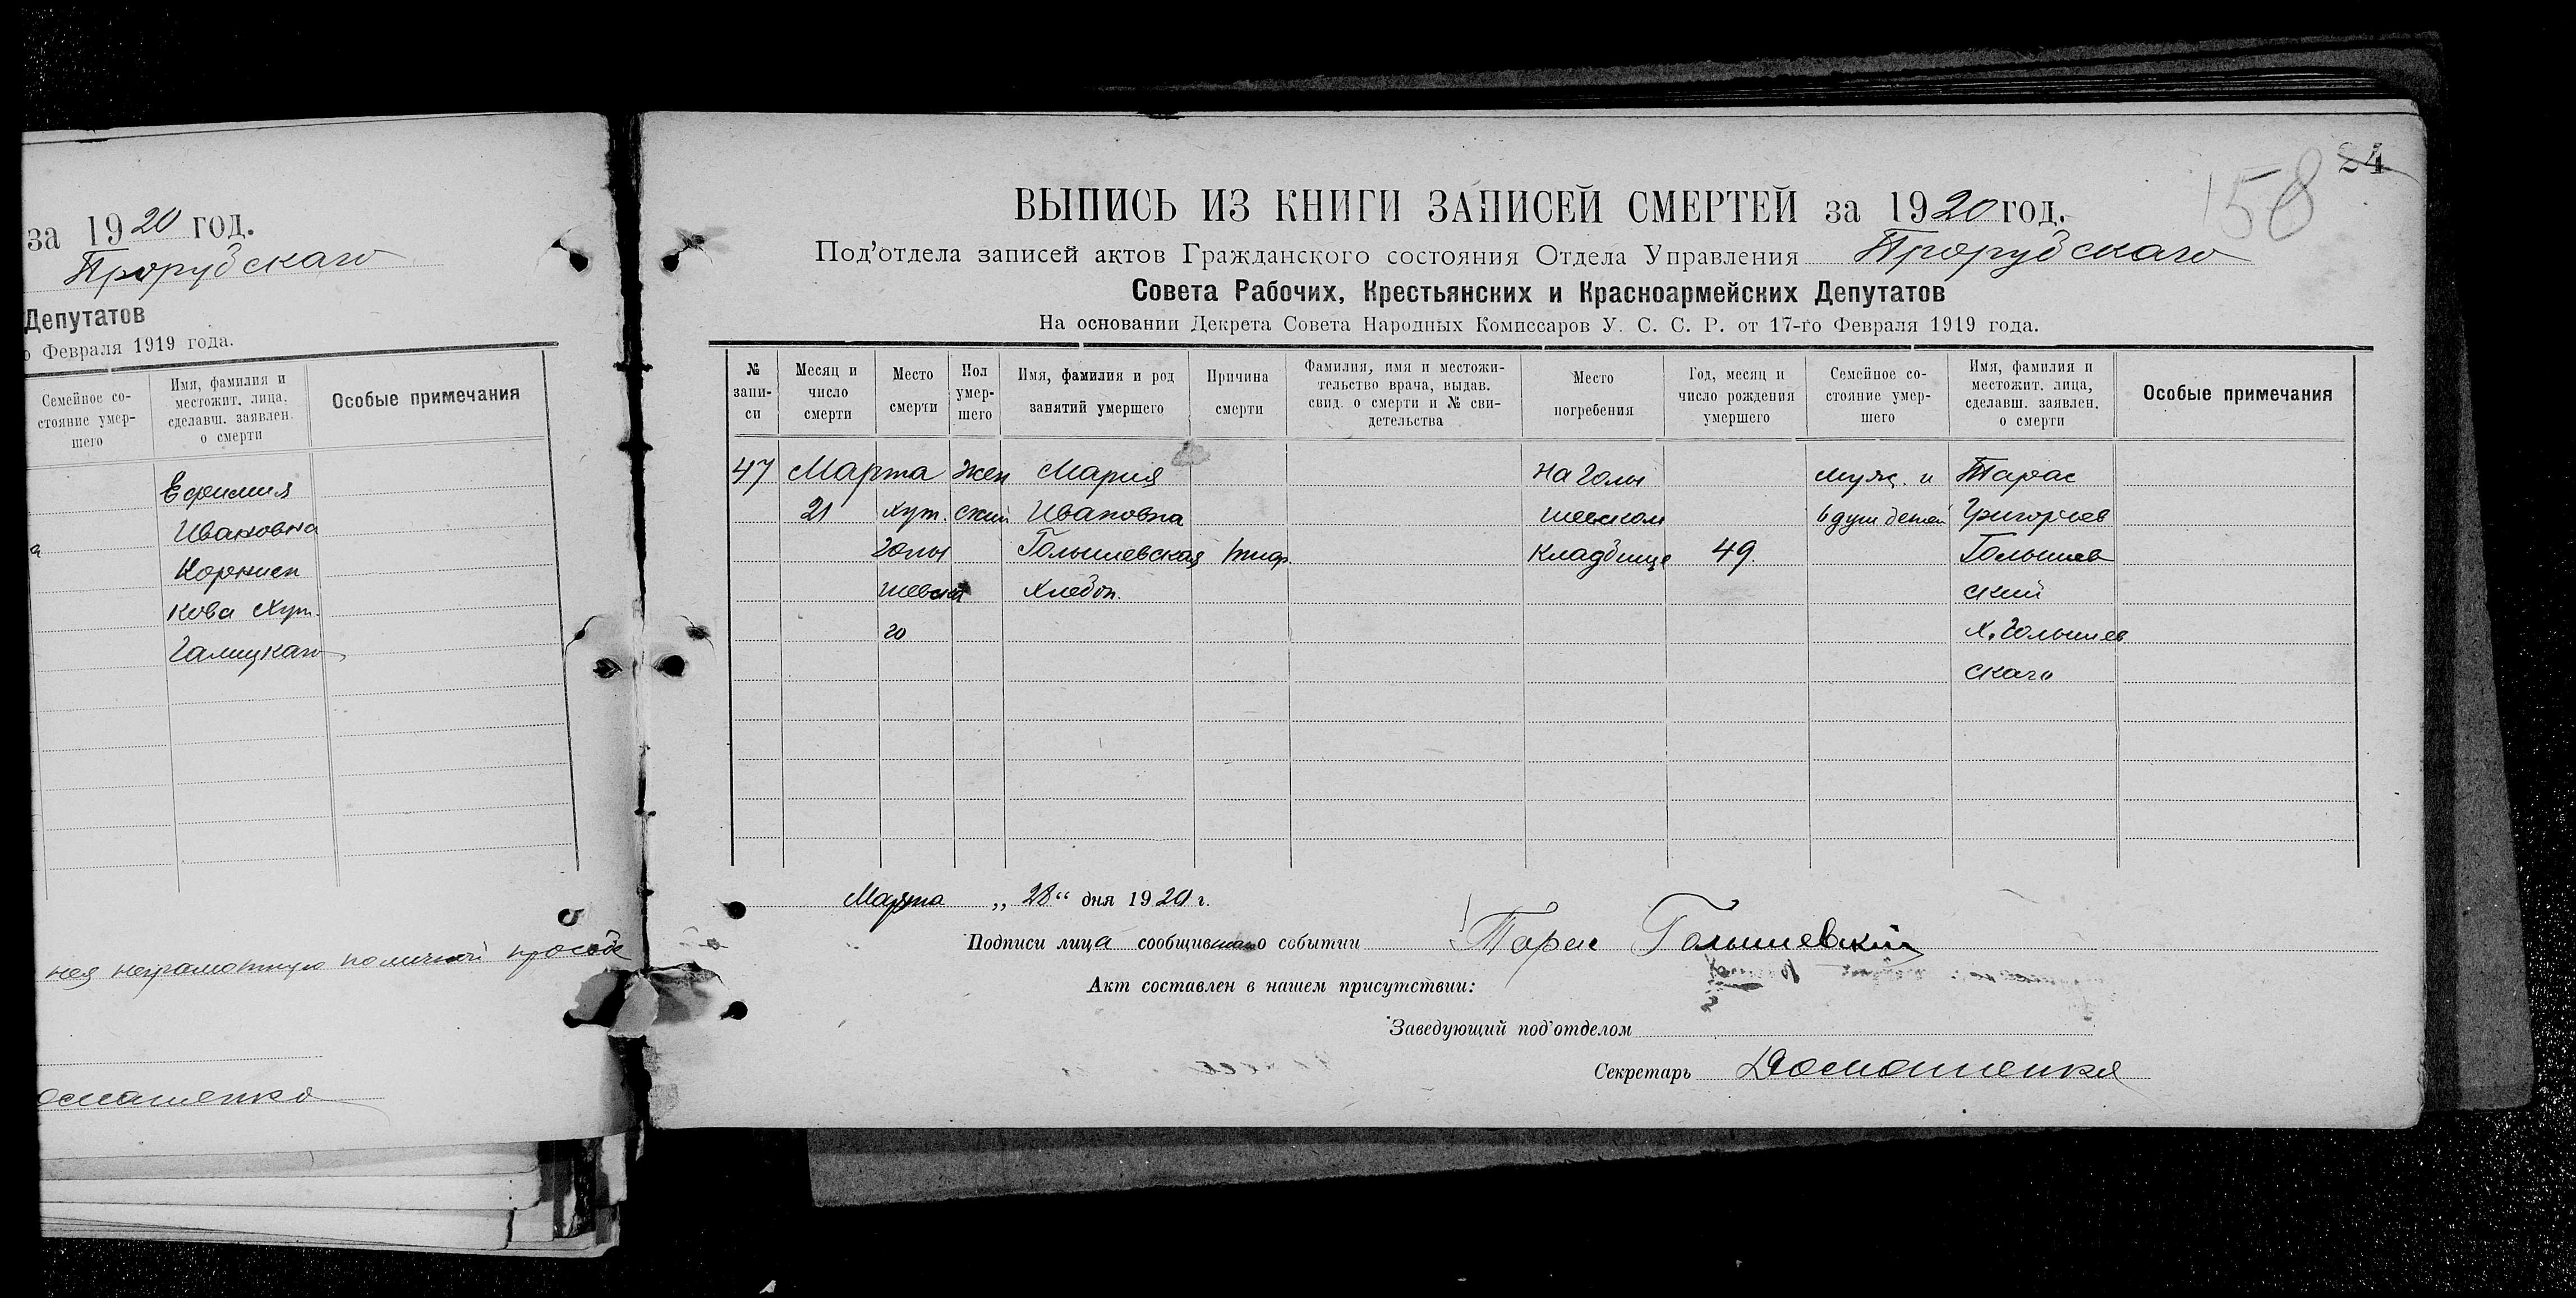 за 1920 год.
Прорубскаго
Депутатов
о Февраля 1919 года.
Семейное со-
стояние умер-
шего
Имя, фамилия и
местожит. лица,
сделавш. заявлен.
о смерти
Особые примечания
Ефимия
Ивановна
Корниен
кова Хут.
Галицкаго
нея неграмотную по личной просьбе
158
24
ВЫПИСЬ ИЗ КНИГИ ЗАПИСЕЙ СМЕРТЕЙ за 1920 год.
Под'отдела записей актов Гражданского состояния Отдела Управления Прорубскаго
Совета Рабочих, Крестьянских и Красноармейских Депутатов
На основании Декрета Совета Народных Комиссаров У. С. С. Р. от 17-го Февраля 1919 года.
№
запи-
си
Месяц и
число
смерти
Место
смерти
Пол
умер-
шего
Имя, фамилия и род
занятий умершего
Причина
смерти
Фамилия, имя и местожи-
тельство врача, выдав.
свид. о смерти и № сви-
детельства
Место
погребения
Год, месяц и
число рождения
умершего
Семейное со-
стояние умер-
шего
Имя, фамилия и
местожит. лица,
сделавш. заявлен.
о смерти
Особые примечания
47 Марта Жен Мария на Голы муж. и Тарас
21 хут. ский Ивановна шевском 6 душ детей Григорьев
Голы Голышевская тиф. кладбище 49. Голышев
шевска Хлебоп. ский
го Х. Голышев
скаго
Марта „ 28 “ дня 1920 г.
Подписи лица сообщившаго о событии Тарас Голышевский
Акт составлен в нашем присутствии:
Заведующий под'отделом
Секретарь Домашенко